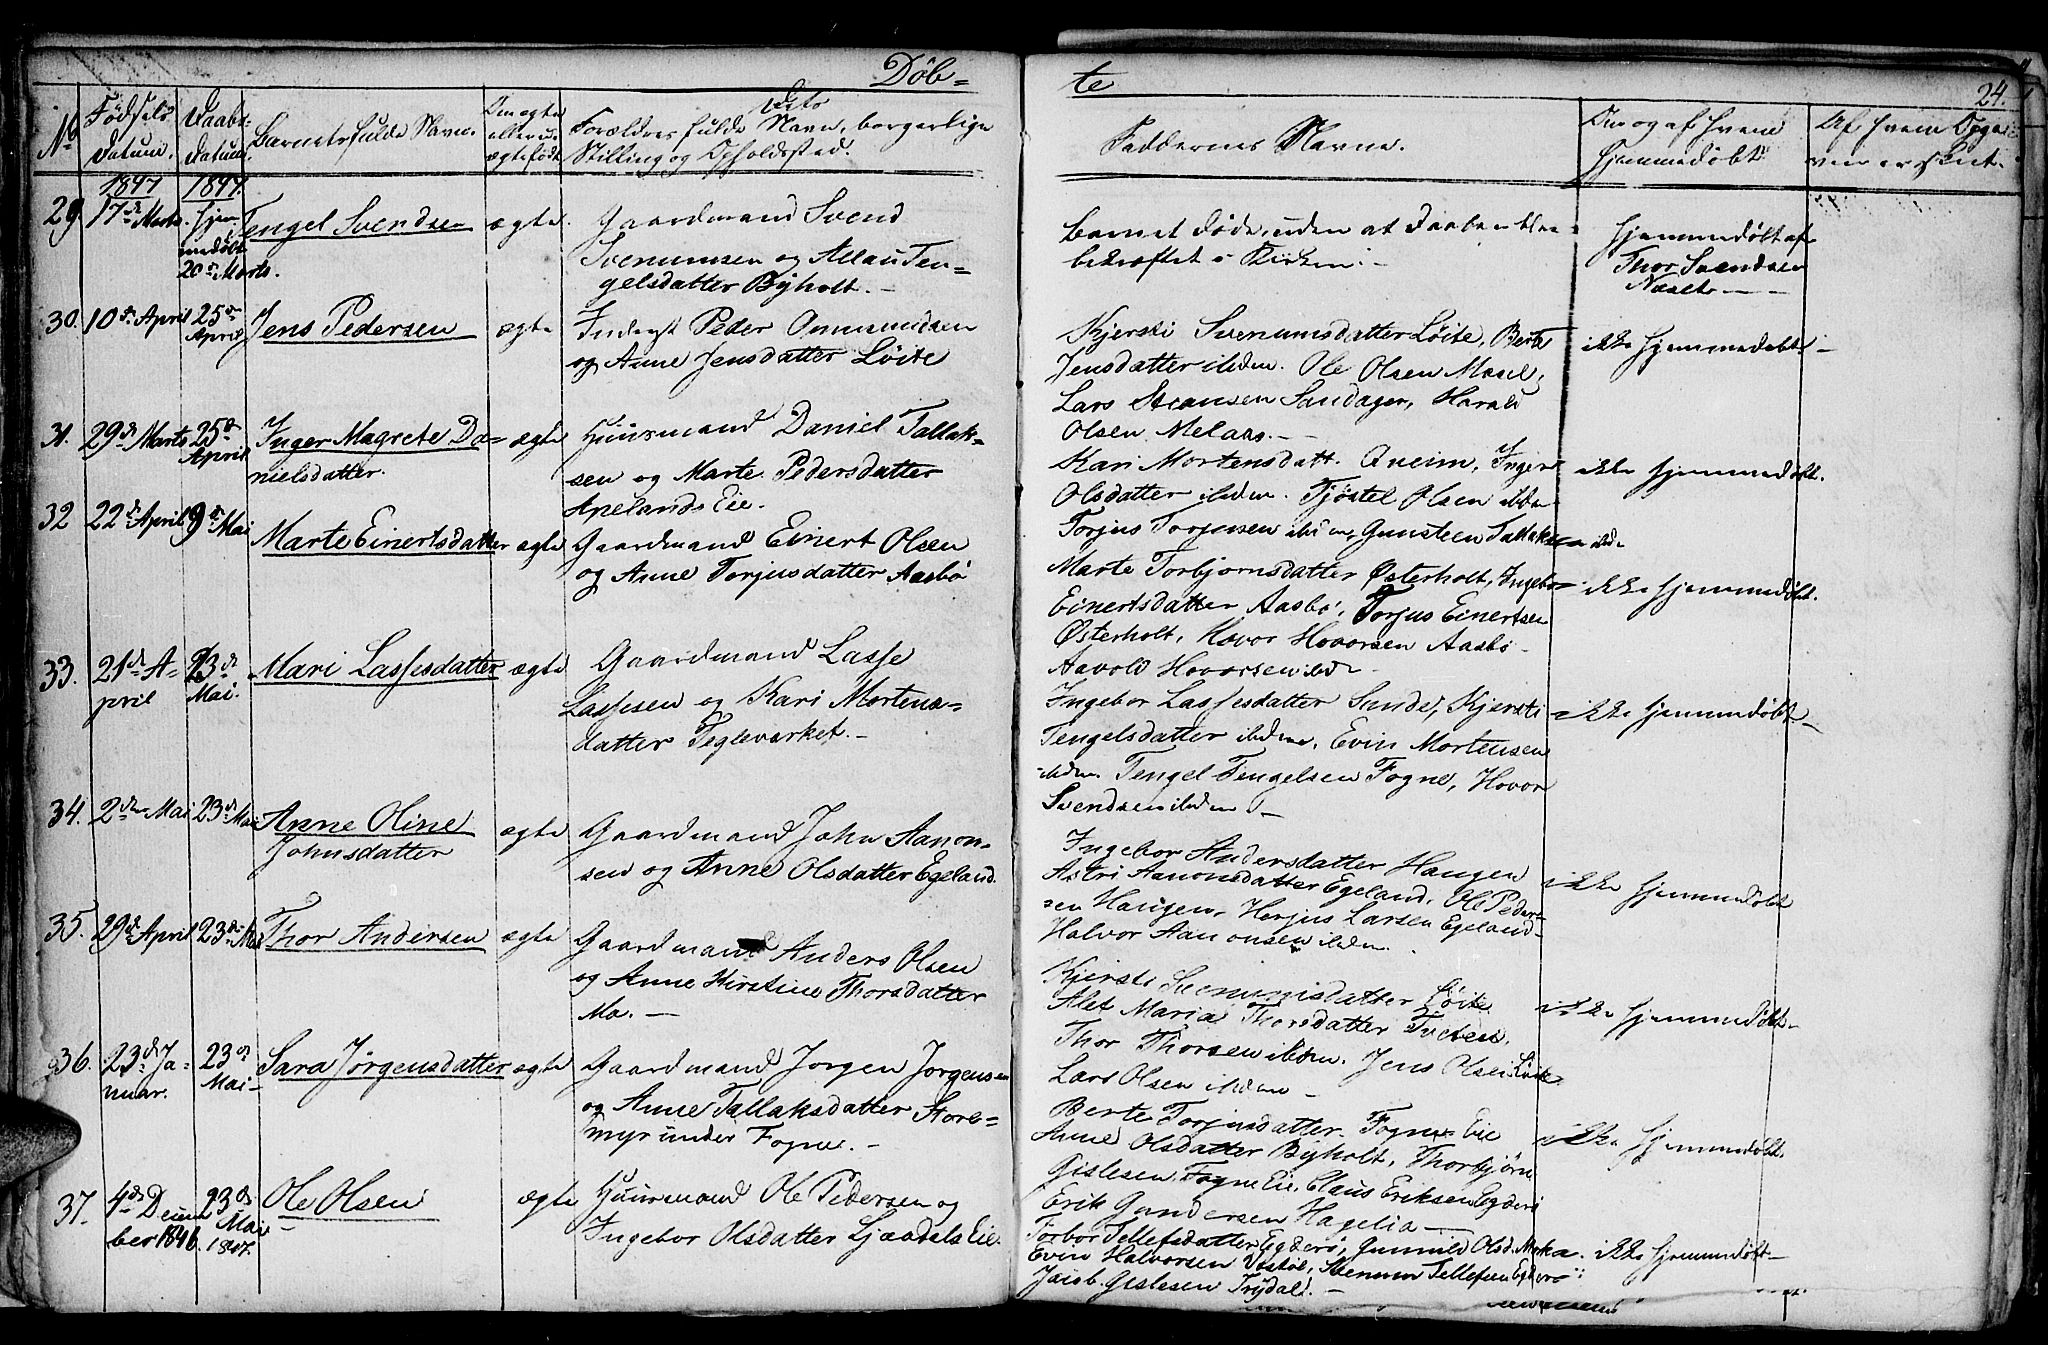 Døb= te 24.
No Fødsels Datum. Daabs Datum. Barnets fulde Navn. Om ægte eller uægte født Forældres fulde Navn, borgerlige Stilling og Opholdssted. Faddernes Navne. Om og af hvem hjemmedøbt
1847 1847.
29. 17de Marts hjemmedøbt 20de Marts. Tengel Svendsen ægte.
Gaardmand Svend
Svenumsen og
gelsdatter Byholt. -
Barnet døde, uden at Daaben blev
bekræftet i Kirken. -
hjemmedøbt af
Thor Svendsen
30. 10de April 25de April Jens Pedersen ægte
Inderst Peder
og Anne Jensdatter Løite
Kjersti Svenumsdatter Løite,
Jensdatter ibidem. Ole Olsen
Lars Sandager, Harald
Olsen Melaas. -
ikke hjemmedøbt -
31. 29de Marts 25de April Inger Magrete Da=
nielsdatter.
ægte
Huusmand Daniel Tallak=
sen og Marte Pedersdatter
Apelands Eie.
Kari Mortensdatt. Qveim, Inger
Olsdatter ibidem. Tjøstel Olsen ibidem
Torjus ibidem, Gunsteen Tallaksen ibid.
ikke hjemmedøbt.
32 22de April 9de Mai Marte Einertsdatter ægte
Gaardmand Einert Olsen
og Anne Torjusdatter Aasbø
Marte Torbjornsdatter Østerholt, Ingebor
Einertsdatter Aasbø, Torjus Einertsen
Østerholt, Hovor Hovorsen Aasbø -
Aavold Hovorsen ibid -
ikke hjemmedøbt.
33. 21de A=
pril 23de Mai. Mari Lassesdatter ægte
Gaardmand Lasse
Lassesen og Kari Mortens=
datter Teglverket. -
Ingebor Lassesdatter Sunde, Kjersti
Tengelsdatter ibidem, Evin Mortensen
ibidem. Tengel Tengelsen Fogne, Hovor
Svendsen ibidem -
ikke hjemmedøbt. -
34. 2den Mai 23de Mai Anne Oline
Johnsdatter
ægte
Gaardmand John Aanon=
sen og Anne Olsdatter Egeland.
Ingebor Andersdatter Haugen
Astri Aanonsdatter Egeland, Ole Peder=
sen Haugen, Herjus Larsen Egeland -
Halvor Aanonsen ibidem.
ikke hjemmedøbt
35. 29de April 23de Mai Thor Andersen ægte
Gaardmand Anders Olsen
og Anne Kirstine Thorsdatter
Mo. -
Kjersti Svenumsdatter Løite
Alet Maria Thorsdatter Tveten.
Thor Thorsen ibidem. Jens Olsen Løite.
Lars Olsen ibidem -
ikke hjemmedøbt -
36. 23de Ja=
nuar. 23de Mai - Sara Jørgensdatter ægte
Gaardmand Jorgen Jorgensen
og Anne Tallaksdatter Store=
myr under Fogne. -
Berte Torjusdatter Fogne Eie
Anne Olsdatter Byholt, Thorbjørn
Gislesen Fogne Eie, Claus Eriksen Egderø
Erik Gundersen Hagelia -
ikke hjemmedøbt.
37. 4de Decem
ber 1846. 23de Mai 1847. Ole Olsen ægte
Huusmand Ole Pedersen og
Ingebor Olsdatter Ljaadals Eie.
Torbor Tellefsdatter Egderø, Gunnild Olsd.
Evin Halvorsen Vestøl, Svenum Tellefsen Egderø
Jacob Gislesen Trydal. -
ikke hjemmedøbt -